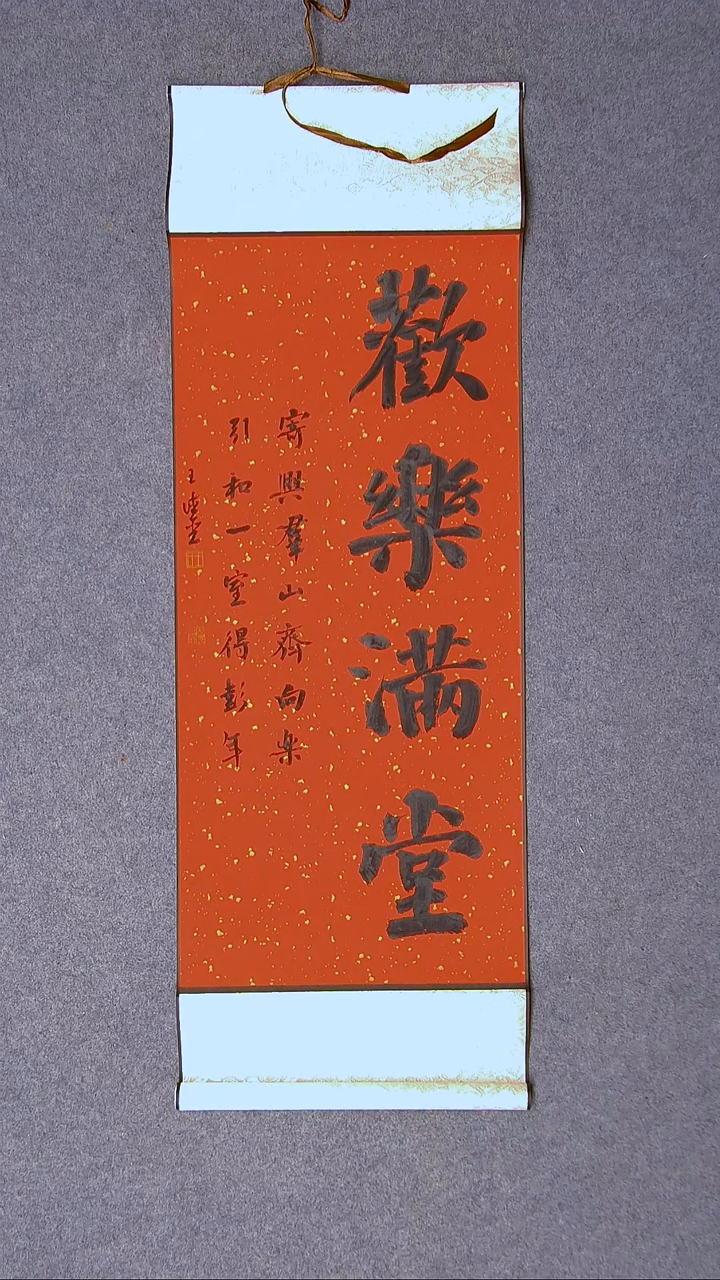 歡樂滿堂
寄興羣山齊向樂
引和一室得彭年
王